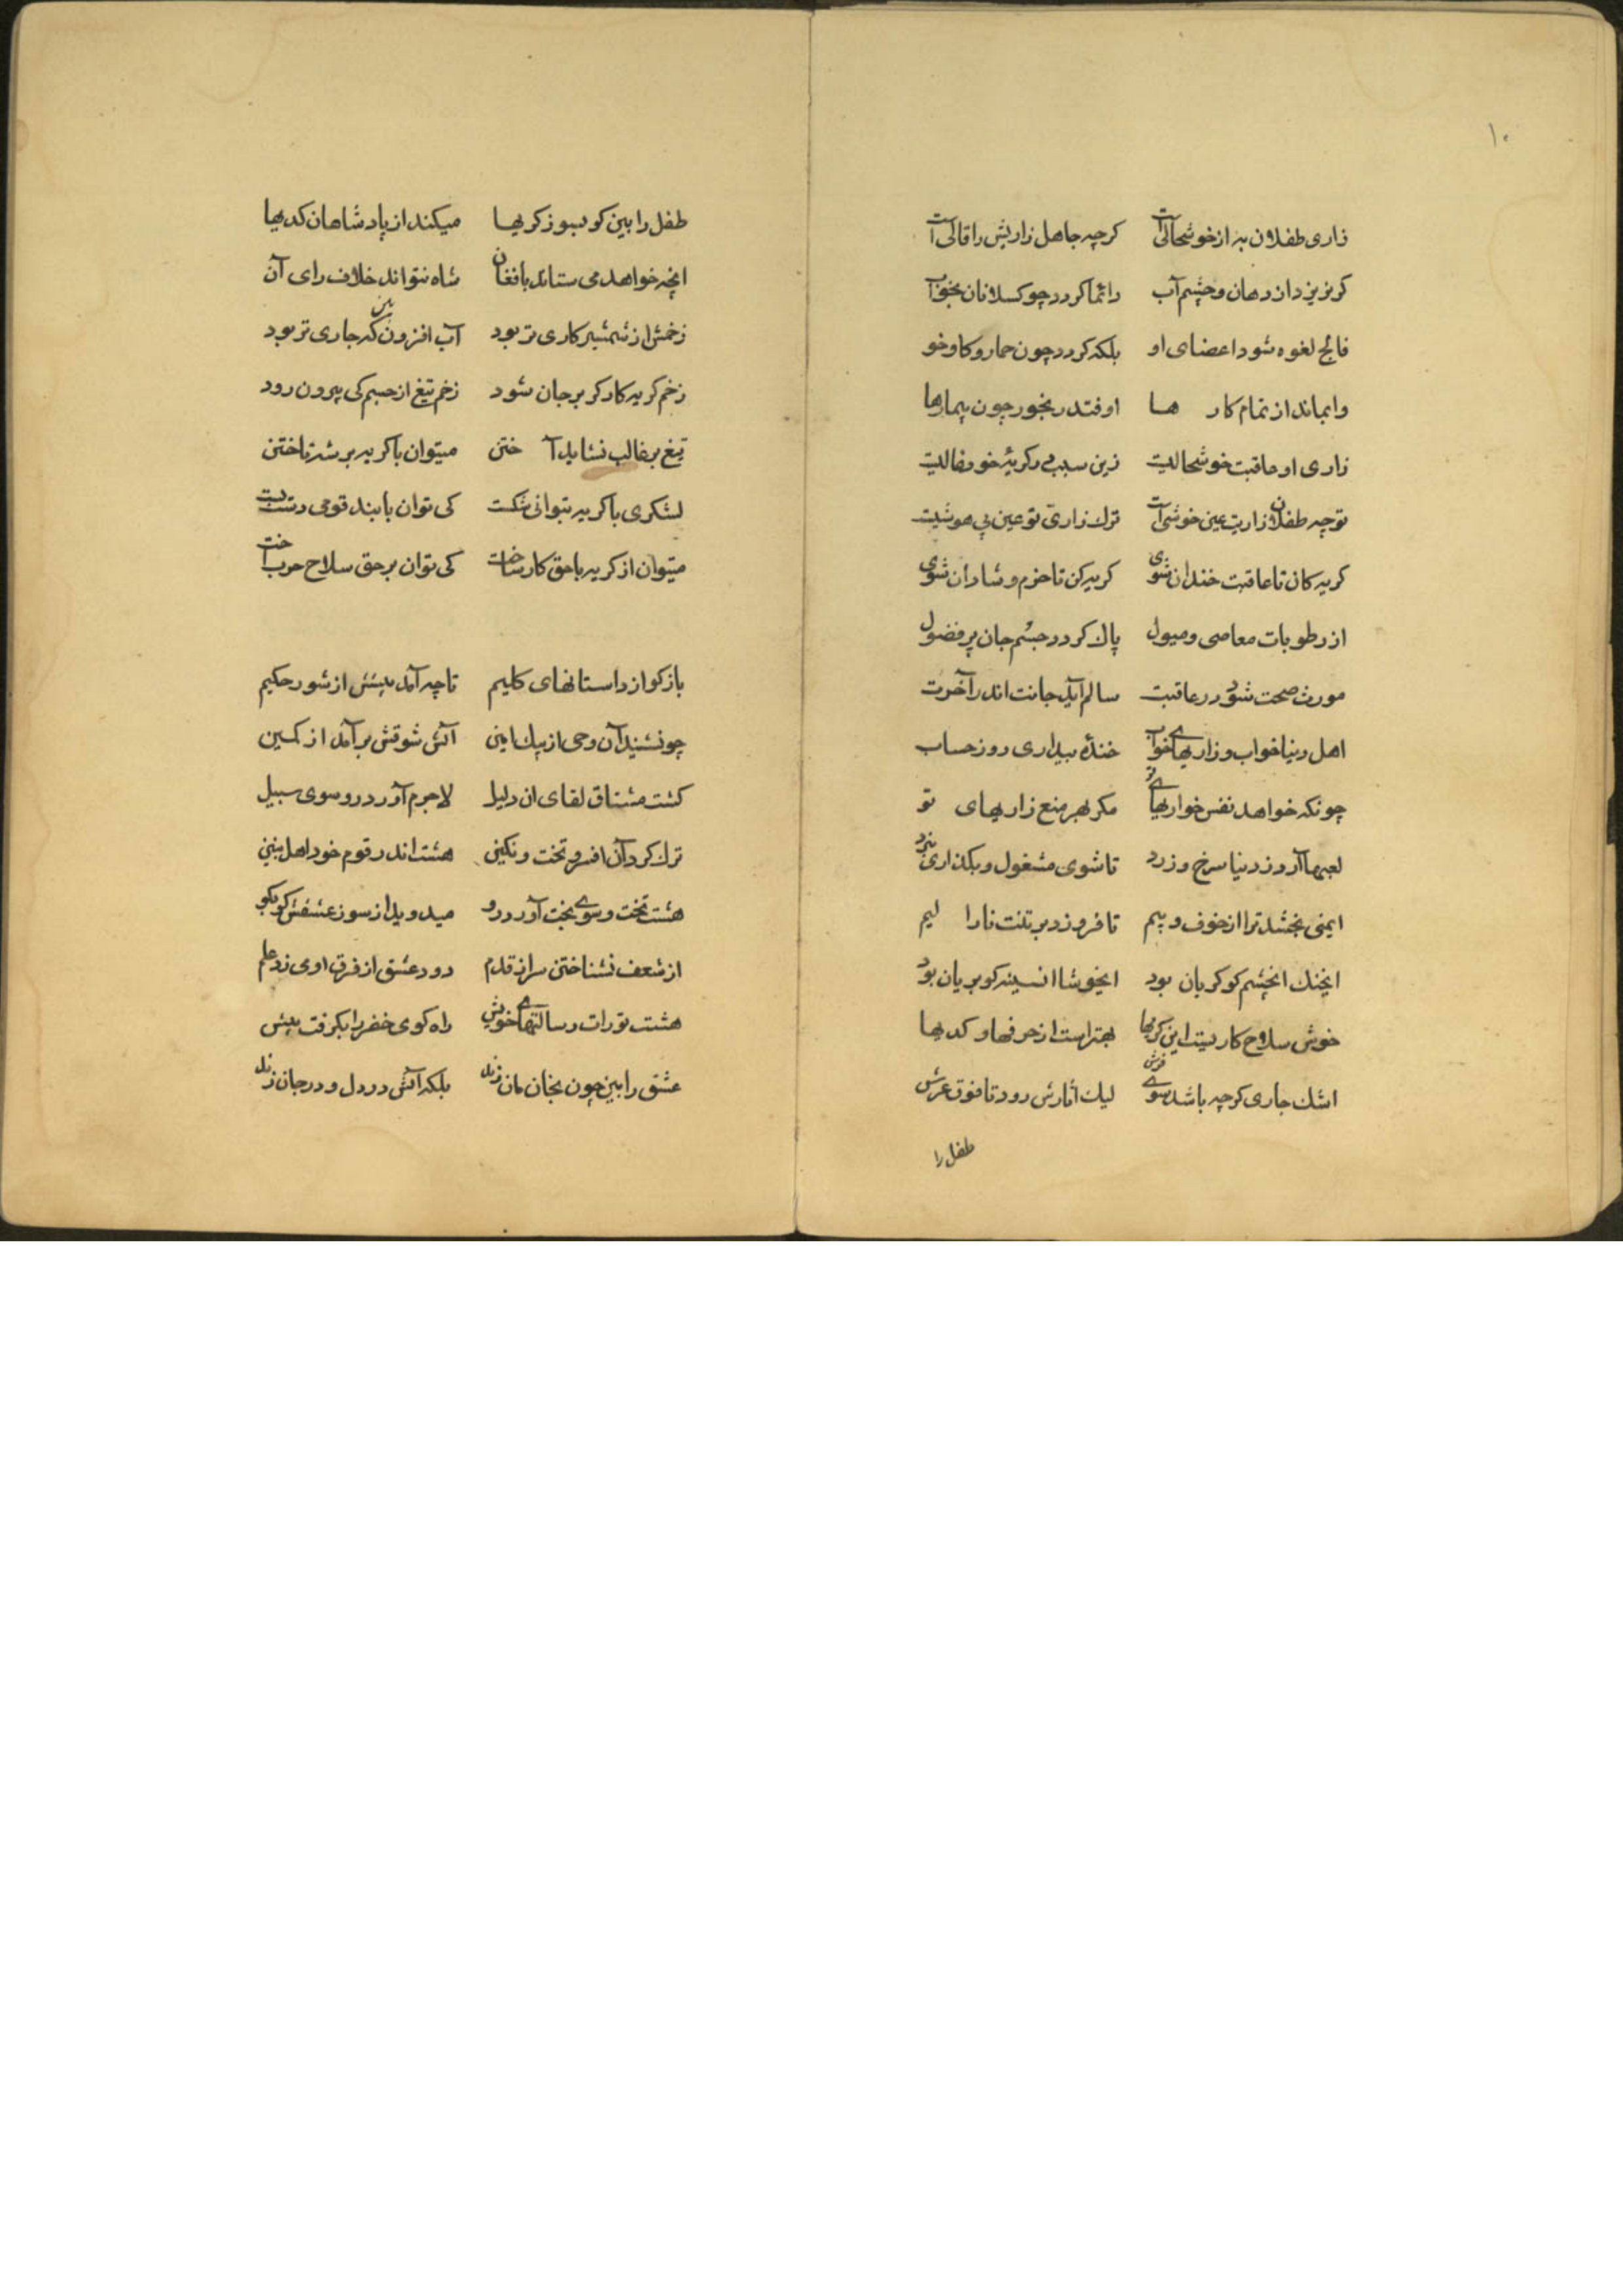 ۱۰
زاری طفلان به از خوشحالی است کرچه جاهل زاریش را قالی است
کر نریزد از دهان و چشم آب دائما کردد چو کسلانان بخواب
فالج لغوه شود اعضای او بلکه کردد چون حمار و کاو خو
وابماند از تمام کار ها اوفتد رنجور چون بیمارها
زاری او عاقبت خوشحالیت زین سبب در کریهٔ خود
توچه طفلان زاریت عین خوشی است ترک زاری تو عین بی هوشیت
کریه کان تا عاقبت خندان شوی کریه کن تا خرم و شادان شوی
از رطوبات معاصی و میول پاک کردد جسم جان پر فضول
مورث صحت شود در عاقبت سالم آید جانت اندر آخرت
اهل دنیا خواب و زاریهای خواب خندهٔ بیداری روز حساب
چونکه خواهد نفس خواریهای تو مکر بهر منع زاریهای تو
لعبها آرد ز دنیا سرخ و زرد تا شوی مشغول و بکذاری نبرد
ایمنی بخشد ترا از خوف و بیم تا فروزد بر تنت نارا لیم
ایخنک انچشم کو کریان بود ایخوشا انسینه کو بریان بود
خوش سلاح کاریست این کریها بهتر است از حرفها و کدیها
اشک جاری کرچه باشد سوی فرش لیک اثارش رود تا فوق عرش
طفل را
طفل را بین کو بسوز کریها میکند از پادشاهان کدیها
انچه خواهد می ستاند با فغان شاه نتواند خلاف رای آن
زخمش از شمشیر کاری تر بود آب افزون کر جاری تر بود
زخم کریه کارکر بر جان شود زخم تیغ از جسم کی بیرون رود
تیغ بر غالب نشاید آ ختن میتوان با کریه بر شه تاختن
لشکری با کریه بتوانی شکست کی توان با بند قومی دست بست
میتوان از کریه با حق کار ساخت کی توان بر حق سلاح حرب آخت
باز کو از داستانهای کلیم تا چه آمد پیشش از شور حکیم
چونشنید آن وحی از پیک امین آتش شوقش بر آمد از کمین
کشت مشتاق لقای ان دلیل لاجرم آورد رو سوی سبیل
ترک کرد آن افسر و تخت و نکین هشت اندر قوم خود اهل
هشت تخت و سوی بخت آورد رو میدوید از سوز عشقش کو بکو
از شعف نشناختن سر از قدم دود عشق از فرق اوی زد علم
هشت تورات و رسالتهای خویش راه کوی خضر را بکرفت پیش
عشق را بین چون بخان مان زند بلکه آتش در دل و در جان زند